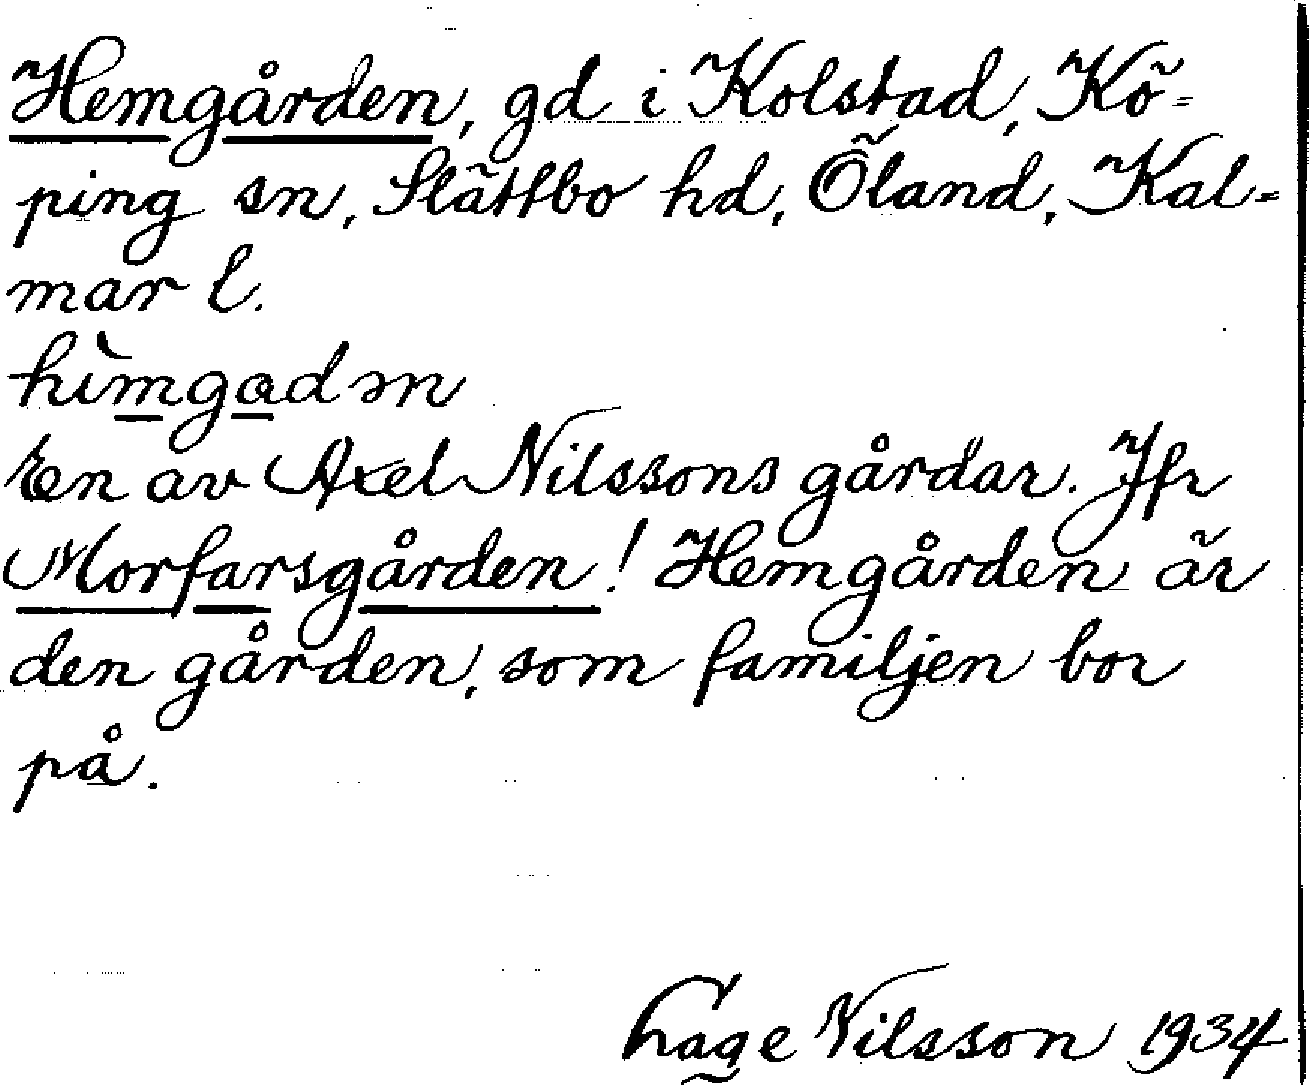 Hemgården, gd i Kolstad, Kö-
ping sn, Slättbo hd, Öland, Kal-
mar l.
himgadm
En av Axel Nilssons gårdar. Jfr
Morfarsgården! Hemgården är
den gården, som familjen bor
på.
Nilsson 1934